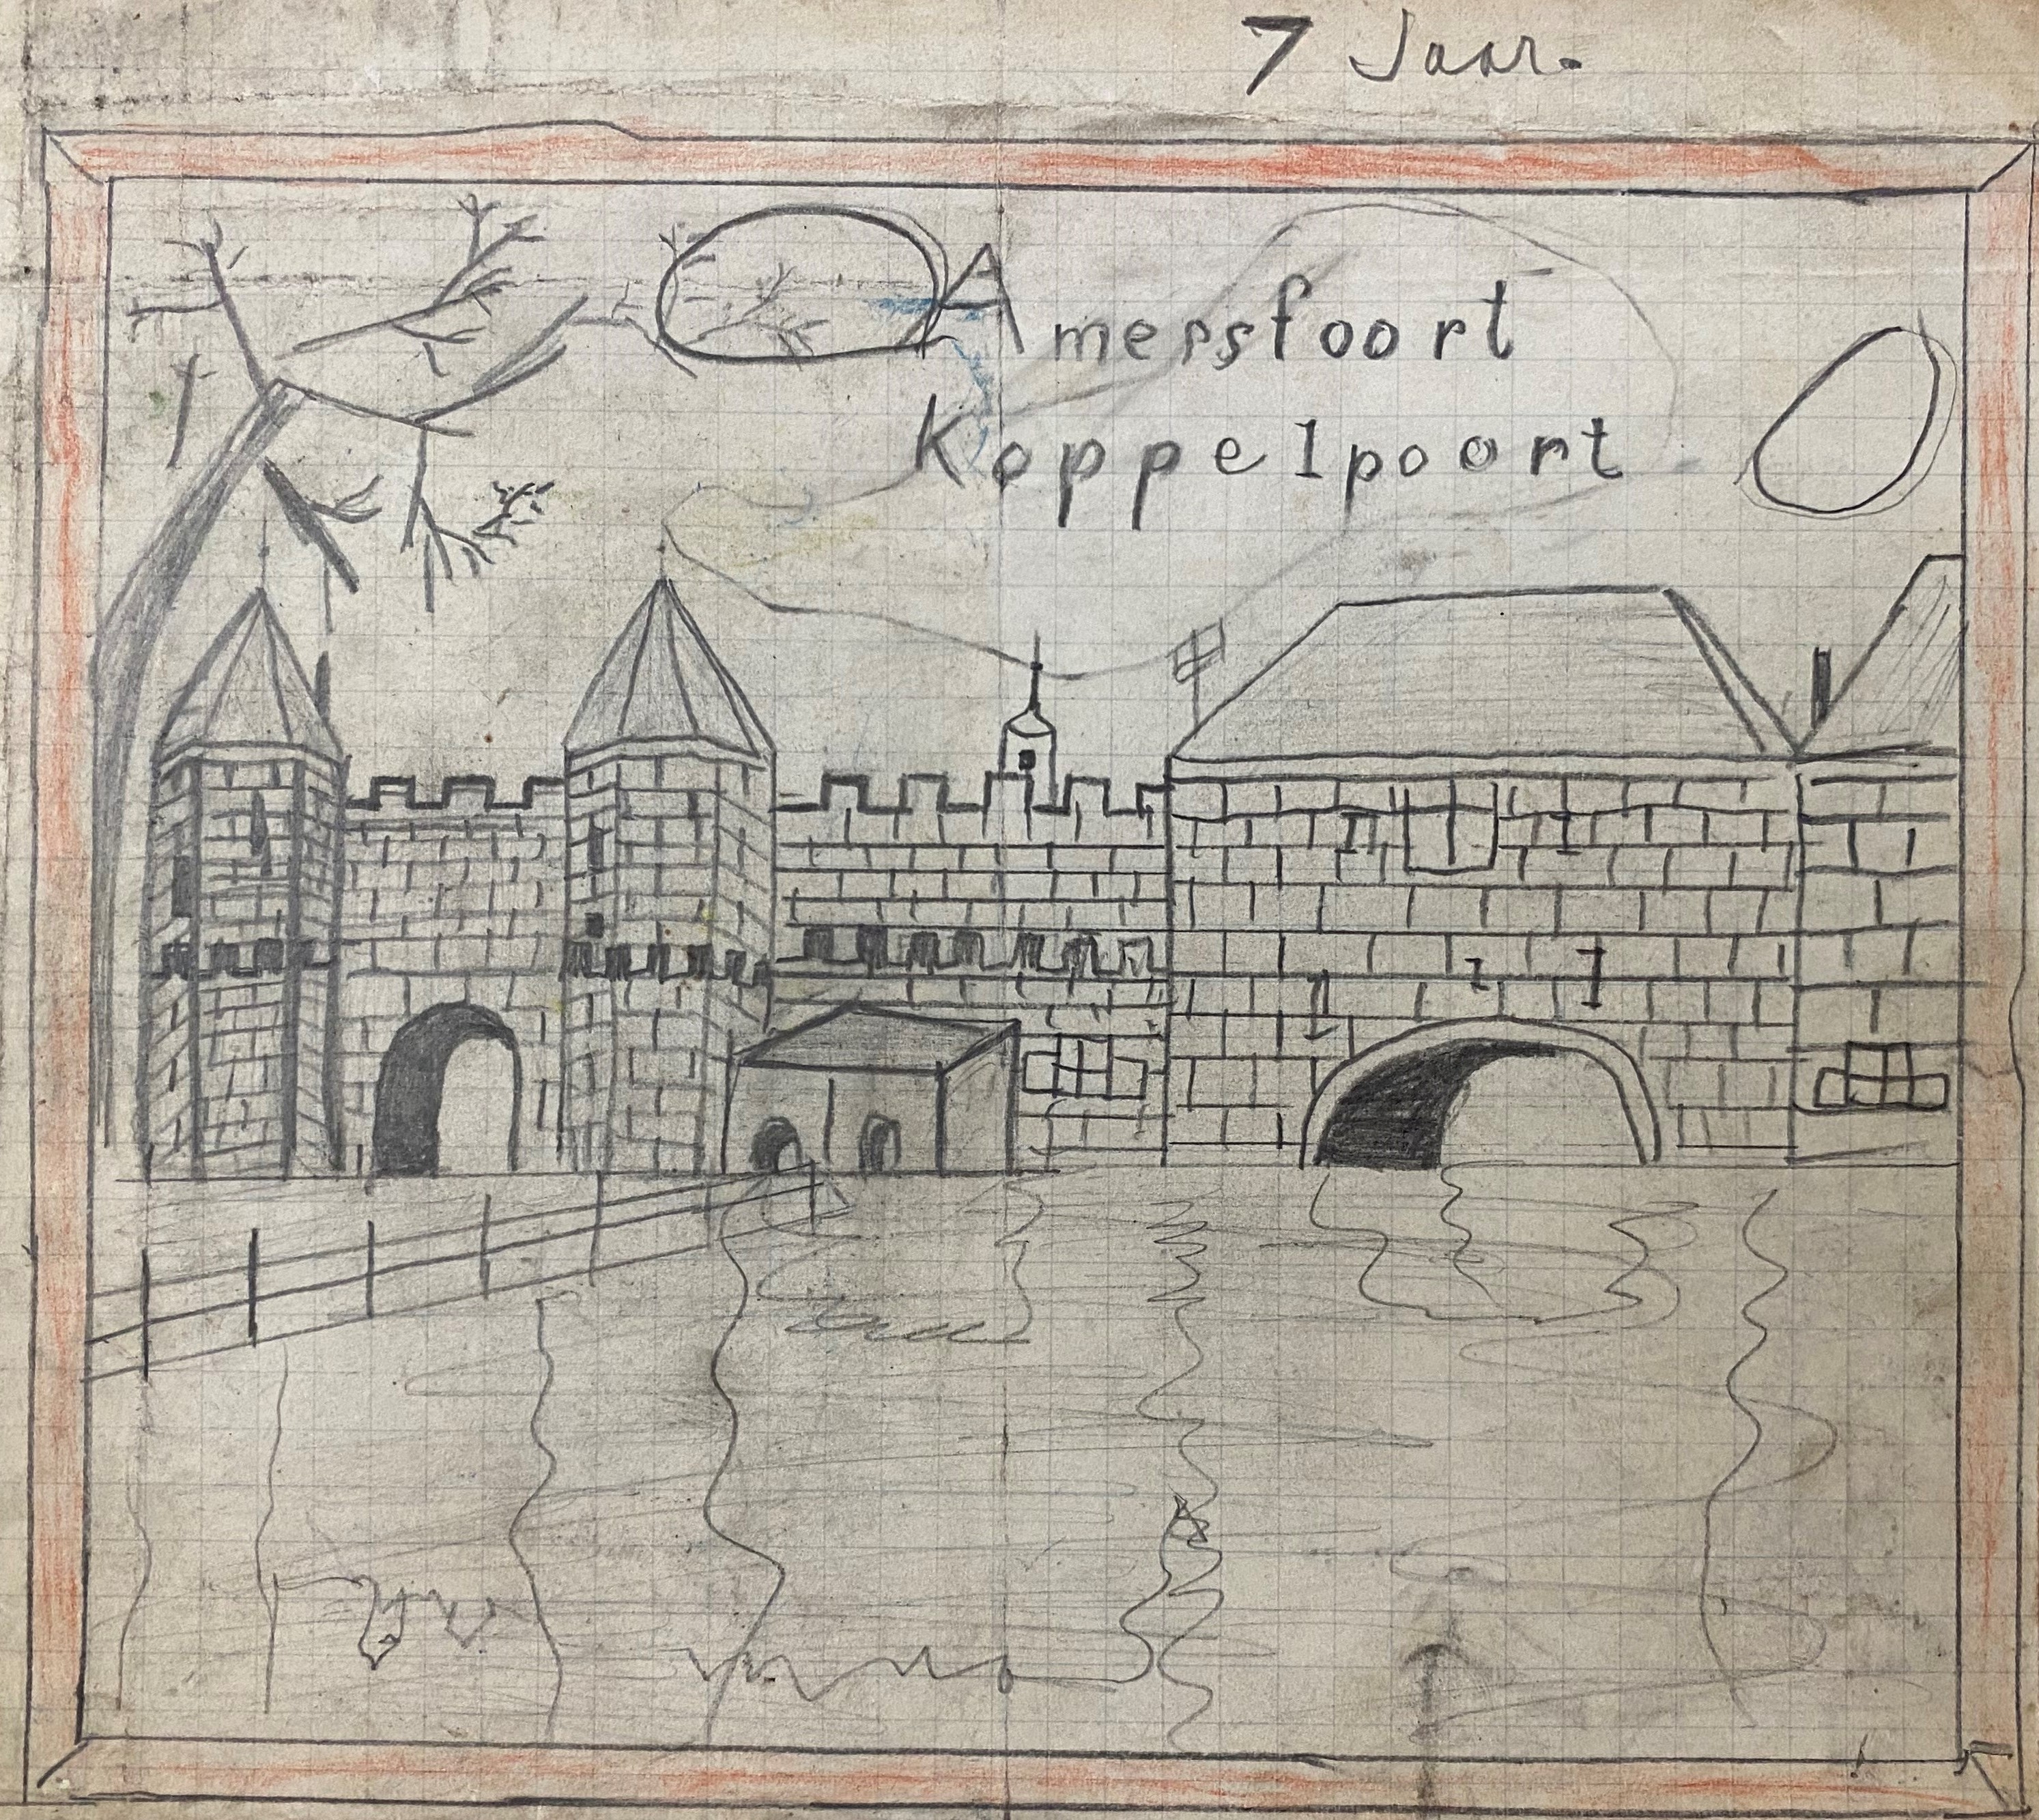 7 Jaar.
Amersfoort
Koppelpoort